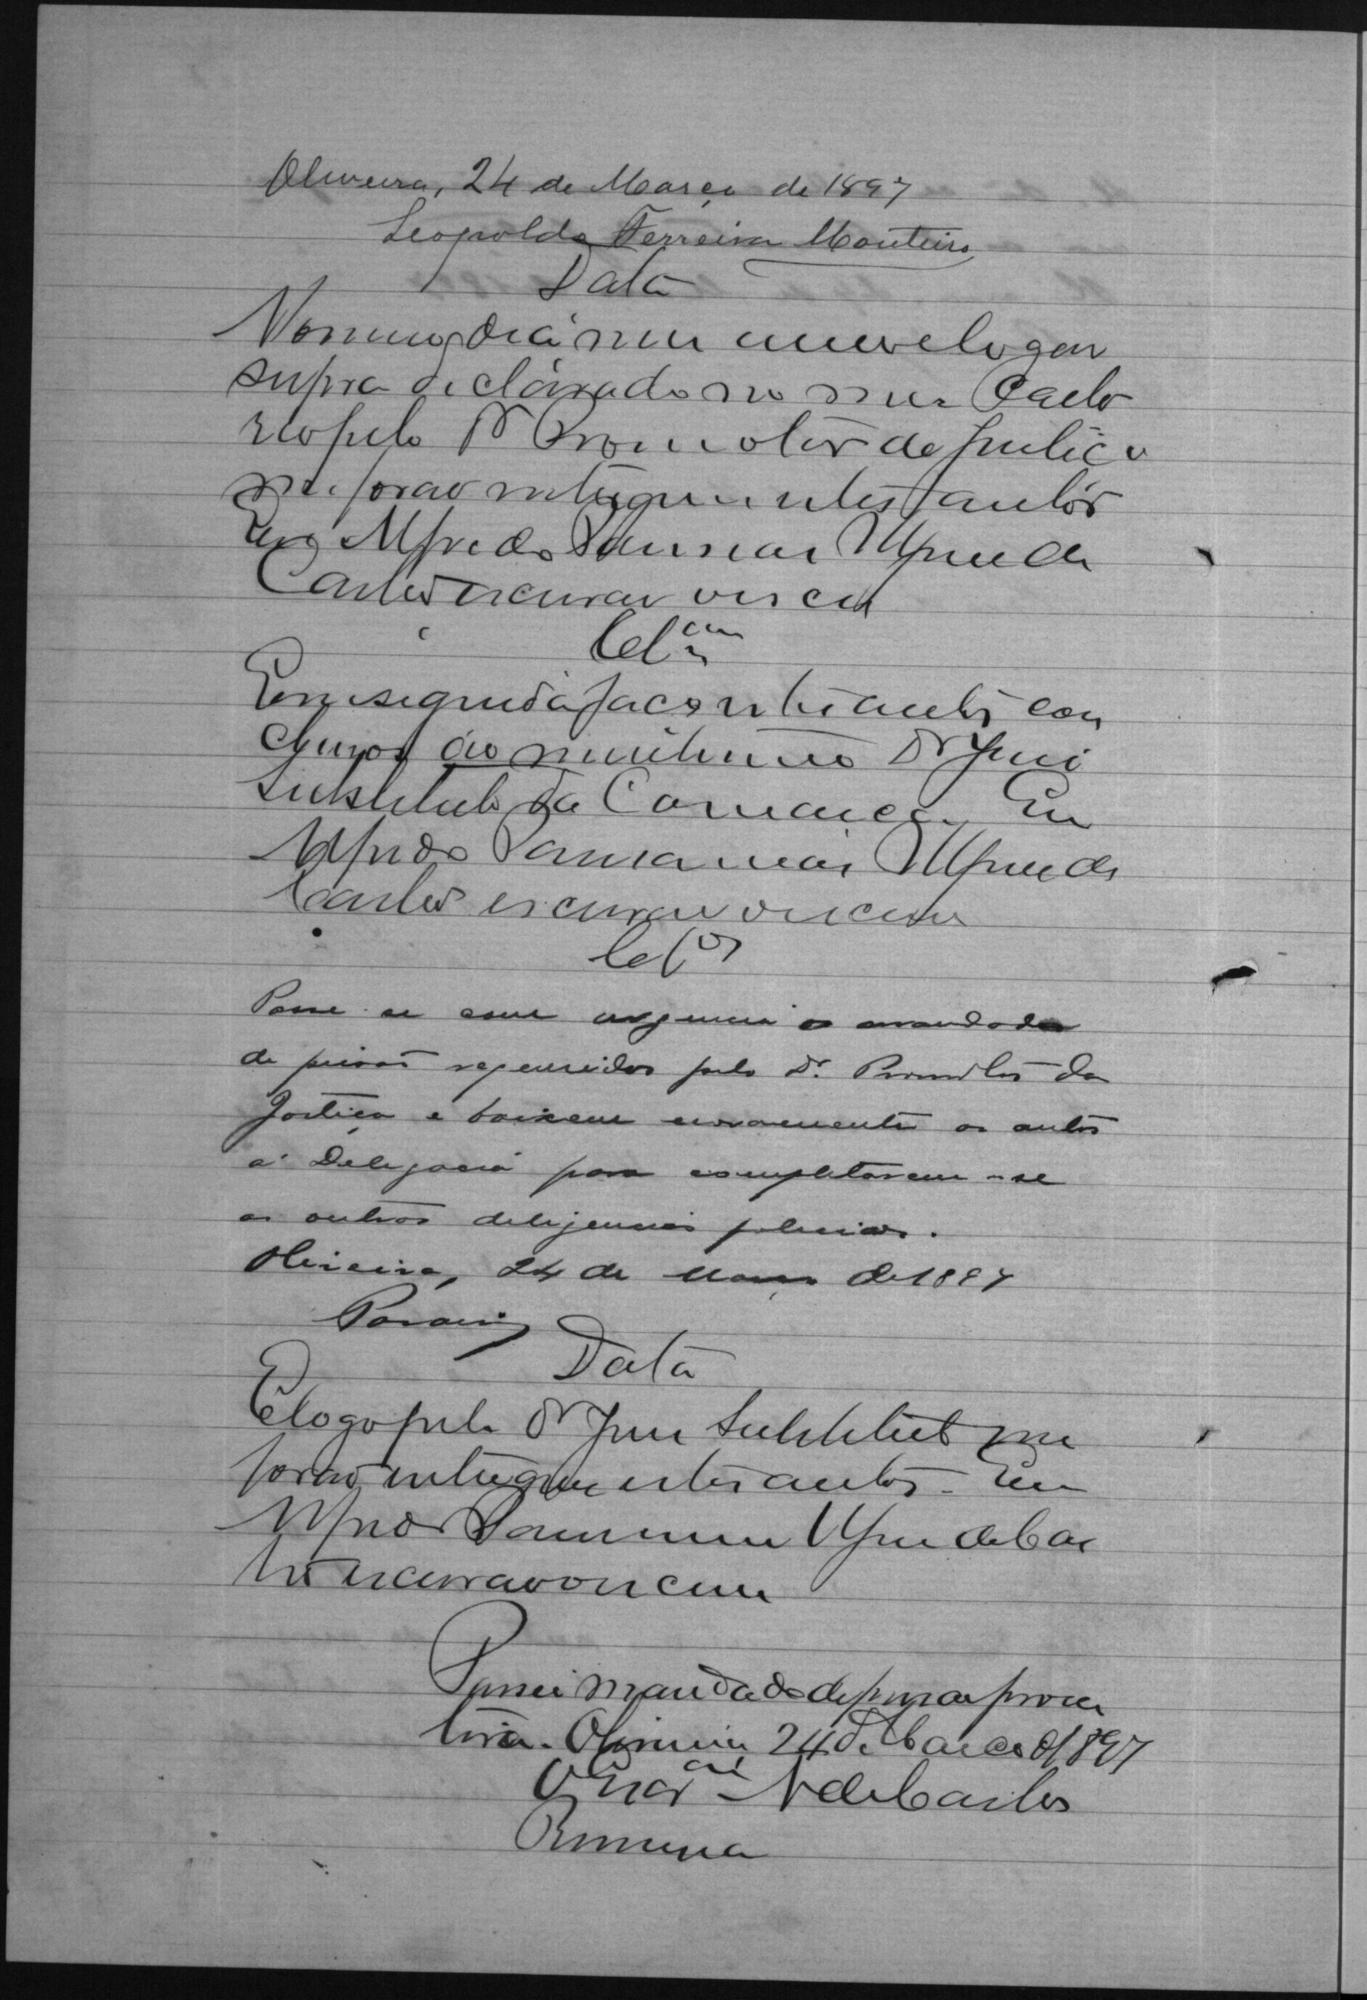 Oliveira, 24 de Março de 1897
Leopoldo Ferreira Monteiro
Data
No mesmo dia mez anno e logar
supra declarado no meu Carto
rio pelo Dr Promotor de Justiça
me forao entregues estes autos
Eu Alfredo
Castro escrivão escrevi
Clsam
Em seguida faço estes autos con
clusos ao meritissimo Dr Juiz
Substituto da Comarca. Eu
Alfredo
Castro escrivão escrevi
Clsos
Passe-se com urgencia o mandado
de prisão requerido pelo Dr. Promotor da
Justiça e baixem novamente os autos
a Delegacia para completarem-se
as outras deligencias policiaes.
Oliveira, 24 de Março de 1897
Data
E logo pelo Dr Juiz Substituto me
forao entregues estes autos. Eu
Alfredo de Cas
tro escrivão o escrevi
Passei mandado de prisao preven
tiva. Oliveira 24 de Março de 1897
O Escram A de Castro